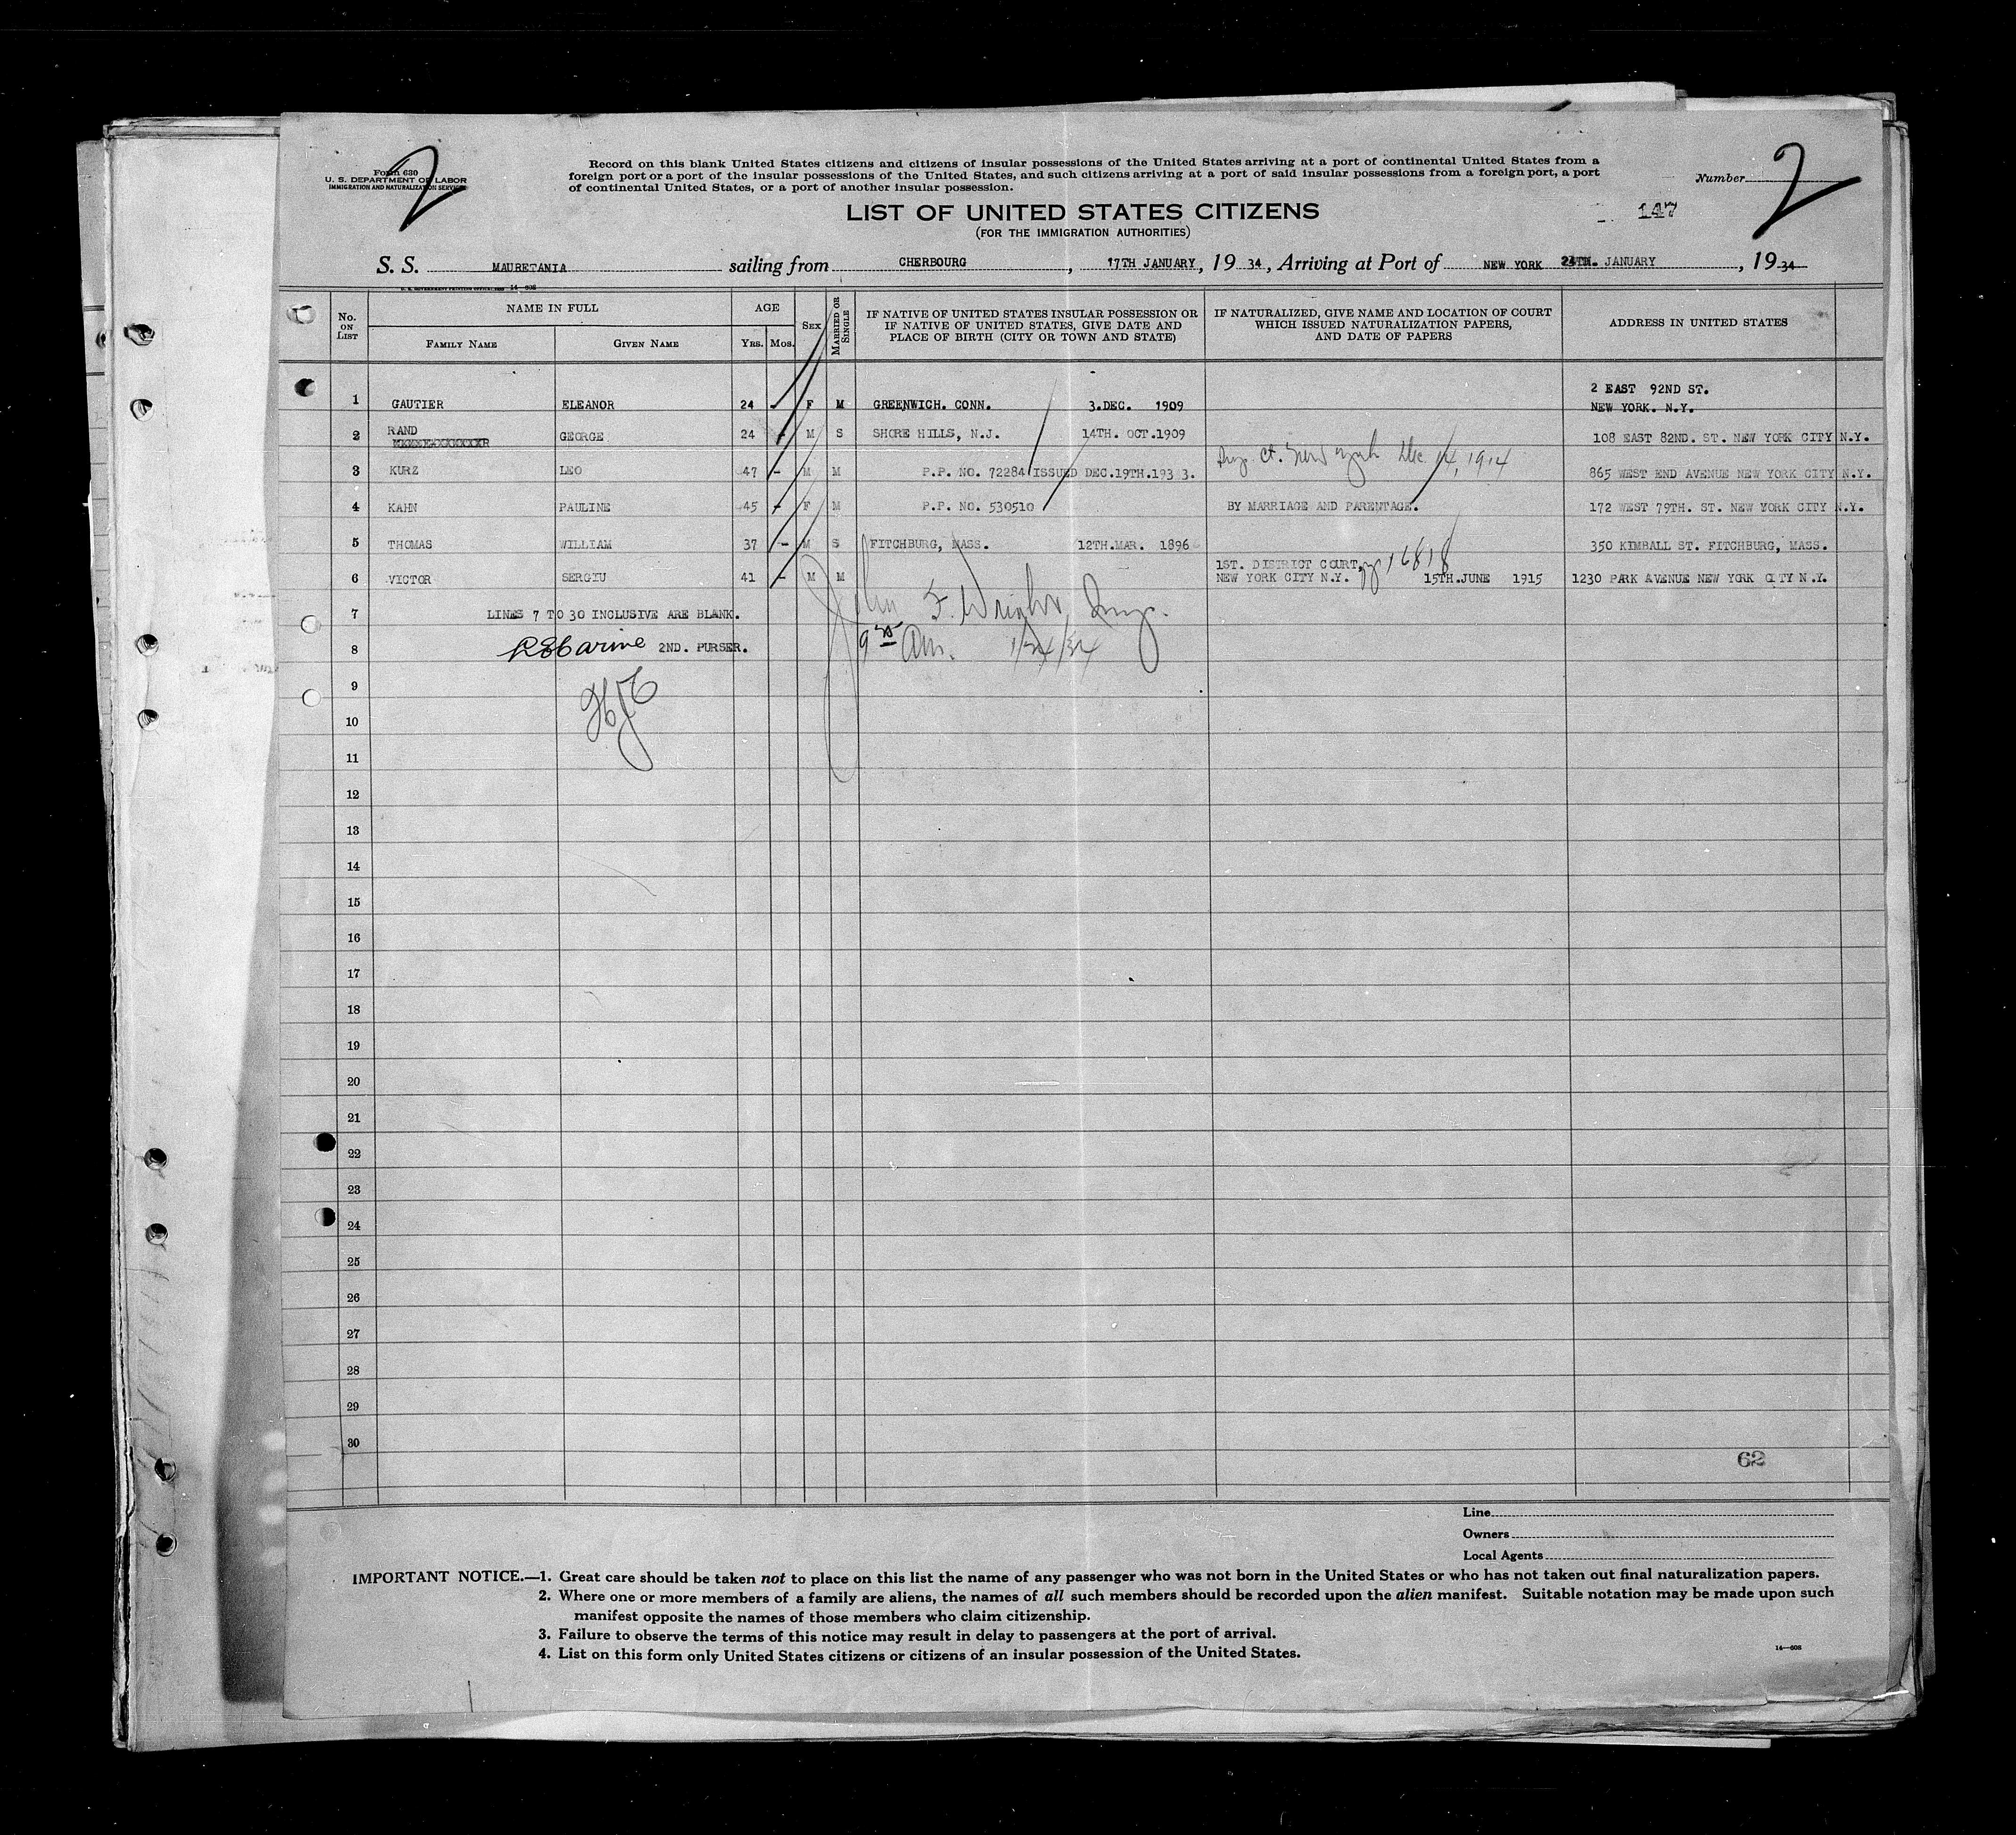 Form 630
U. S. DEPARTMENT OF LABOR
IMMIGRATION AND NATURALIZATION SERVICE
2
Record on this blank United States citizens and citizens of insular possessions of the United States arriving at a port of continental United States from a
foreign port or a port of the insular possessions of the United States, and such citizens arriving at a port of said insular possessions from a foreign port, a port
of continental United States, or a port of another insular possession.
Number 2
LIST OF UNITED STATES CITIZENS
147
(FOR THE IMMIGRATION AUTHORITIES)
S. S. MAURETANIA sailing from CHERBOURG, 17TH JANUARY, 19 34, Arriving at Port of NEW YORK 24TH. JANUARY, 19 34
14—608
No. ON LIST
NAME IN FULL
FAMILY NAME
GIVEN NAME
AGE
YRS.
MOS.
SEX
MARRIED OR SINGLE
IF NATIVE OF UNITED STATES INSULAR POSSESSION OR
IF NATIVE OF UNITED STATES, GIVE DATE AND
PLACE OF BIRTH (CITY OR TOWN AND STATE)
IF NATURALIZED, GIVE NAME AND LOCATION OF COURT
WHICH ISSUED NATURALIZATION PAPERS,
AND DATE OF PAPERS
ADDRESS IN UNITED STATES
1 GAUTIER ELEANOR 24 - F M GREENWICH. CONN. 3.DEC. 1909 2 EAST 92ND ST.
NEW YORK. N.Y.
2 RAND GEORGE 24 - M S SHORE HILLS, N.J. 14TH. OCT.1909 108 EAST 82ND. ST. NEW YORK CITY N.Y.
3 KURZ LEO 47 - M M P.P. NO. 72284 ISSUED DEC.19TH.1933. Ct. New York Dec 14, 1914 865 WEST END AVENUE NEW YORK CITY N.Y.
4 KAHN PAULINE 45 - F M P.P. NO. 530510 BY MARRIAGE AND PARENTAGE. 172 WEST 79TH. ST. NEW YORK CITY N.Y.
5 THOMAS WILLIAM 37 - M S FITCHBURG, MASS. 12TH.MAR. 1896 350 KIMBALL ST. FITCHBURG, MASS.
6 VICTOR SERGIU 41 - M M 1ST. DISTRICT COURT, 16818
NEW YORK CITY N.Y. 15TH.JUNE 1915 1230 PARK AVENUE NEW YORK CITY N.Y.
7 LINES 7 TO 30 INCLUSIVE ARE BLANK. John F. Insp.
8 2ND. PURSER. 9 Am. 1/24/34
9
10
11
12
13
14
15
16
17
18
19
20
21
22
23
24
25
26
27
28
29
30
62
Line
Owners
Local Agents
IMPORTANT NOTICE.—1. Great care should be taken not to place on this list the name of any passenger who was not born in the United States or who has not taken out final naturalization papers.
2. Where one or more members of a family are aliens, the names of all such members should be recorded upon the alien manifest. Suitable notation may be made upon such
manifest opposite the names of those members who claim citizenship.
3. Failure to observe the terms of this notice may result in delay to passengers at the port of arrival.
4. List on this form only United States citizens or citizens of an insular possession of the United States.
14—608